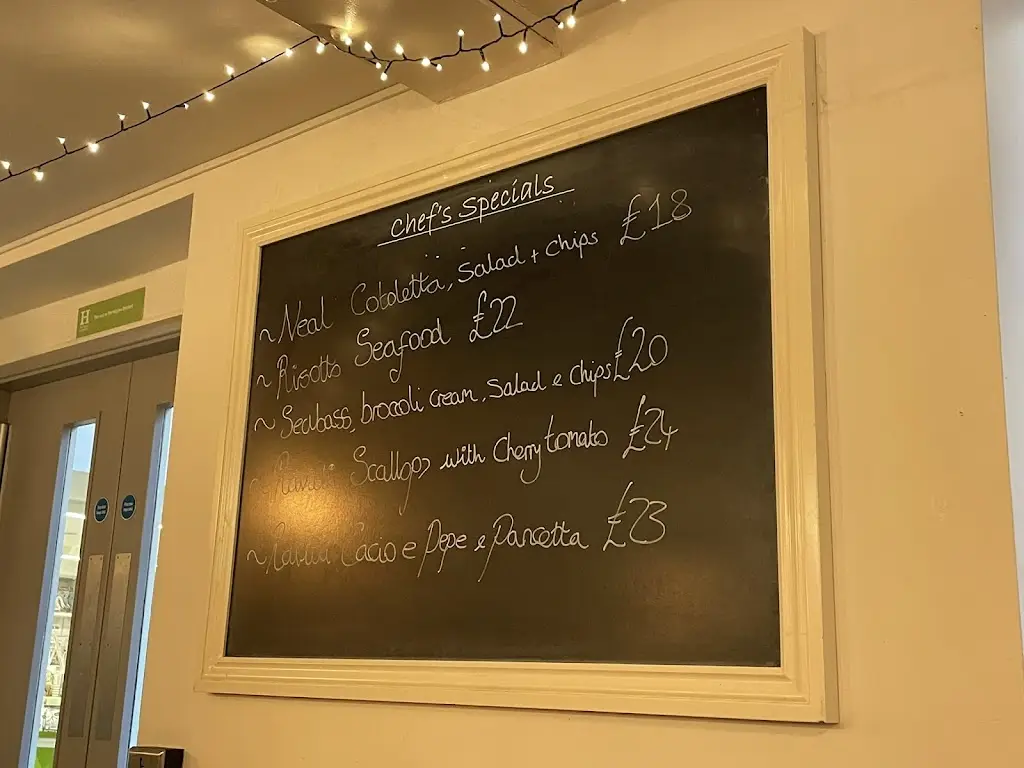 Chef's Specials
~ Veal Cotoletta, Salad + chips £18
~ Risotto Seafood £22
~ Seabass, broccoli cream, Salad e chips £20
~ Ravioli Scallops with Cherry tomato £24
~ Cacio e Pepe e Pancetta £23
H